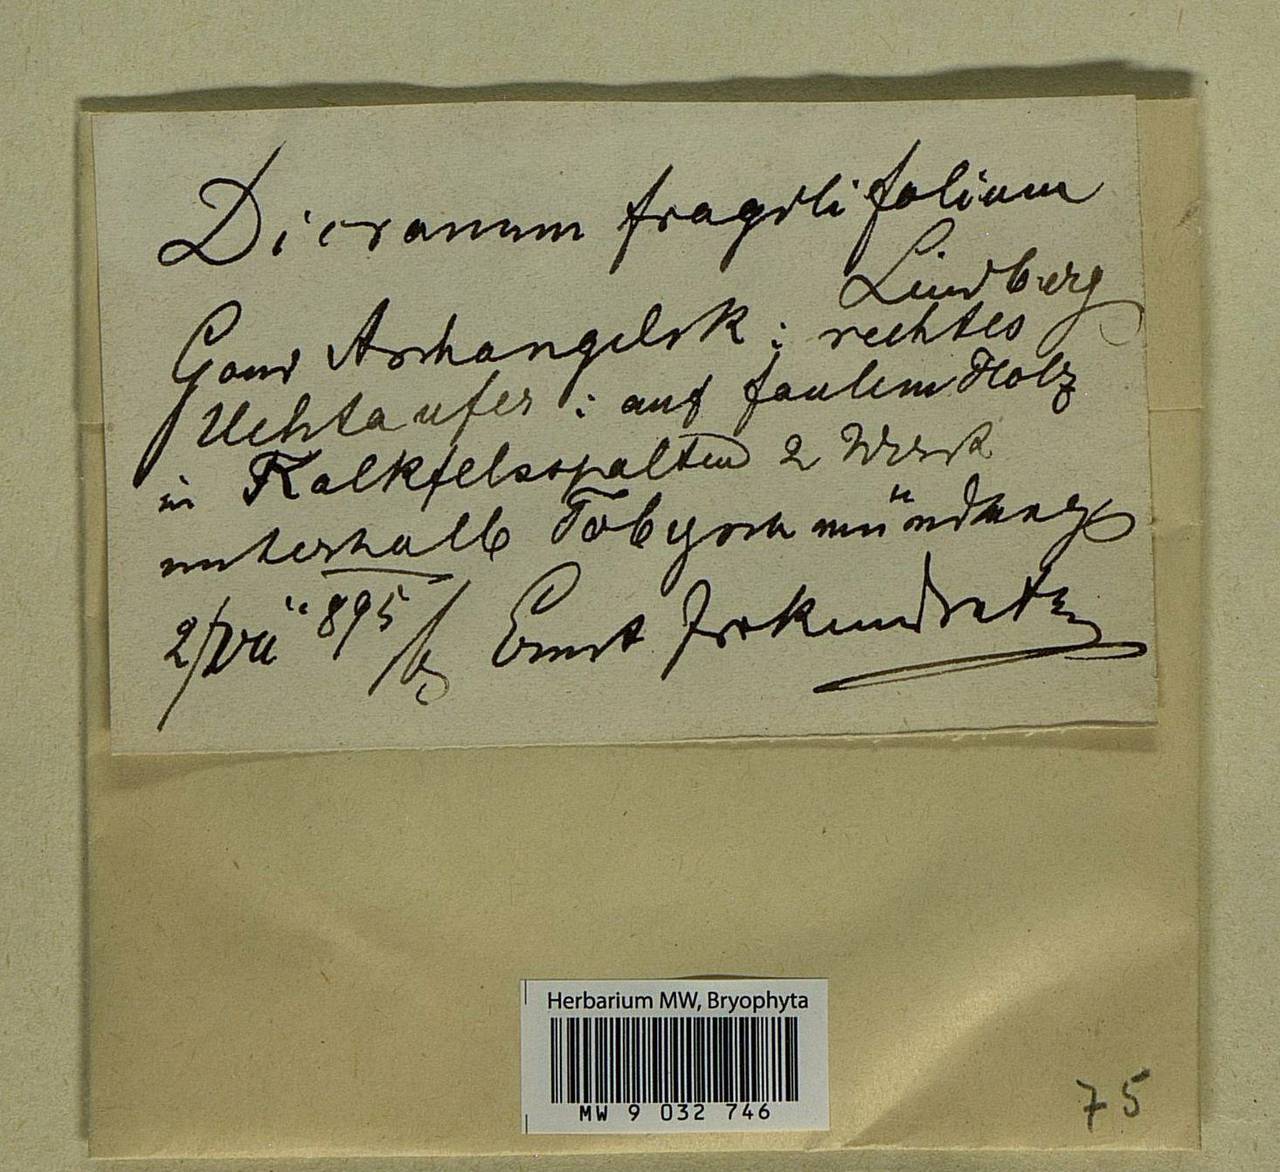 Dicranum fragilifolium
Lindberg
Gouv Archangelsk : rechtes
Uchtaufer : auf faulem Holz
in Kalkfelsspalten 2 Werst
unterhalb Tobysch mündung
2/VII 895 Ernst
Herbarium MW, Bryophyta
MW 9 032 746
75